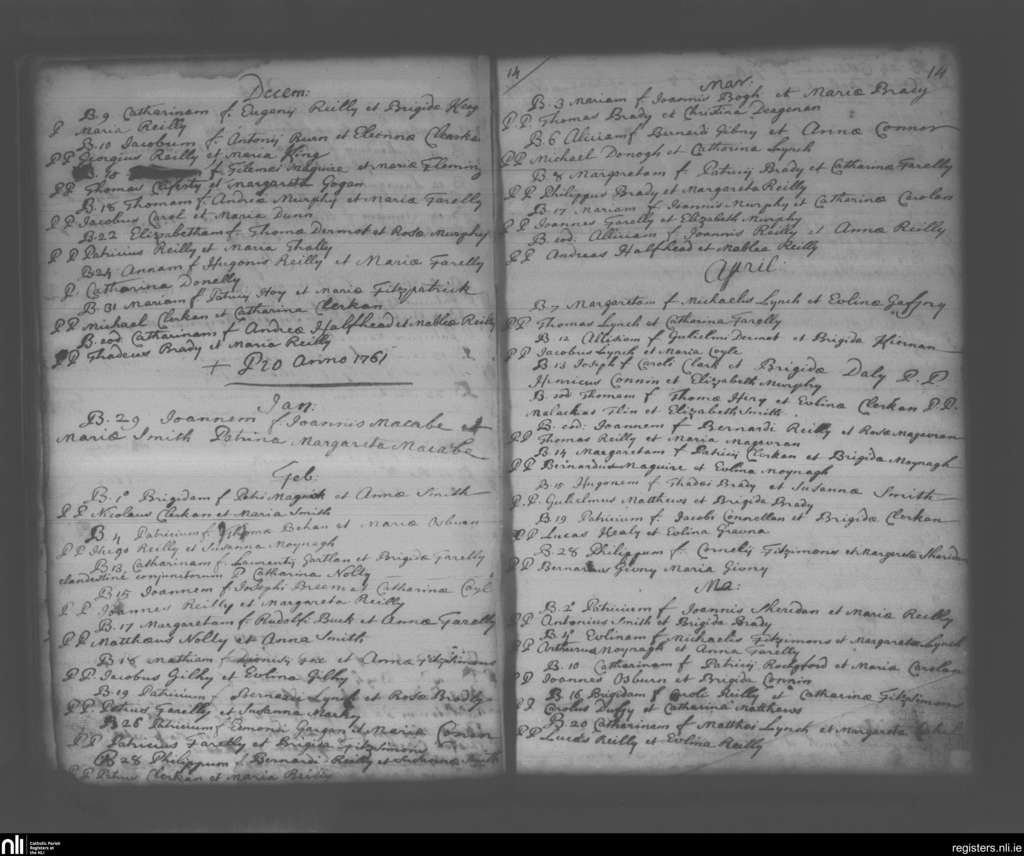 Decem:
B. 9 Catharinam f. Eugenij Reilly et Brigidæ
P Maria Reilly
B. 10 Jacobum f. Antonij Burn et Eleonoræ
P P Georgius Reilly et Maria King
B. 10 f. Maguire et Mariæ Fleming
P P Thomas et Margareta Gogan
B. 18 Thomam f. Andreæ Murphy et Mariæ Farelly
P P Jacobus Carol et Maria Dunn
B. 22 Elizabetham f. Thomæ Dermot et Rosæ Murphy
P P Patricius Reilly et Maria
B 24 Annam f. Hugonis Reilly et Mariæ Farelly
P. Catharina Donelly
B. 31 Mariam f. Patricij Hoy et Mariæ Fitzpatrick
P P Michael Clerkan et Catharina Clerkan
B. eod Catharinam f. Andreæ Halfhead et Mableæ Reilly
P P Thadeus Brady et Maria Reilly
+ Pro Anno 1761
Jan:
B. 29 Joannem f Joannis Macabe et
Mariæ Smith Patrina Margareta Macabe
Feb:
B. 1° Brigidam f Patri et Annæ Smith
P P Nicolaus Clerkan et Maria Smith
B. 4 Patricium f. Thomæ Behan et Mariæ
P P Hugo Reilly et Susanna Moynagh
B. 13 Catharinam f. Laurentij Gartlan et Brigidæ Farelly
clandestine conjunctorum P Catharina Nolty
B. 15 Joannem f Josephi Breen et Catharinæ
P P Joannes Reilly et Margareta Reilly
B. 17 Margaretam f. Rudolfi Buck et Annæ Farelly
P P Matthæus Nolty et Anna Smith
B. 18 Mathiam f Dionisij Fox et Annæ Fitzsimons
P P Jacobus Gilhy et Evlina Gilhy
B. 19 Patricium f. Bernardi Lynch et Rosæ Brady
P P Petrus Farelly et Susanna
B 26 Patricium f. Edmondi Gargan et Mariæ
P P Patricius Farelly et Brigida Fitzsimons
B 28 Philippum f. Bernardi Reilly et Susannæ Smith
P P Petrus Clerkan et Maria Reilly
14
14
Mar:
B. 3 Mariam f. Joannis Bogh et Mariæ Brady
P P. Thomas Brady et Christina Deagenan
B. 6 Aliciam f. Bernardi Gibny et Annæ Connor
P P Michael Donogh et Catharina Lynch
B 8 Margretam f. Patricij Brady et Catharinæ Farelly
P P Philippus Brady et Margareta Reilly
B. 17 Mariam f. Joannis Murphy et Catharinæ Carolan
P P Joannes Farelly et Elizabeth Murphy
B. eod: Alliciam f Joannis Reilly et Annæ Reilly
P P Andreas Halfhead et Mablea Reilly
April:
B. 7 Margaretam f. Michaelis Lynch et Evlinæ Gaffny
P P Thomas Lynch et Catharina Farelly
B 12 f. Gulielmi Dermot et Brigida Kiernan
P P Jacobus Lynch et Maria Coyle
B 13 Joseph f Caroli Clark et Brigidæ Daly P. P
Henricus Connin et Elizabeth Murphy
B. eod Thomam f Thomæ et Evlinæ Clerkan P P.
Malachas Flin et Elizabeth Smith
B. eod: Joannem f Bernardi Reilly et Rosæ Magauran
P P Thomas Reilly et Maria Magauran
B 14 Margaretam f Patricij Clerkan et Brigidæ Moynagh
P P Bernardus Maguire et Evlina Moynagh
B 15 Hugonem f Thadei Brady et Susannæ Smith
P. P. Gulielmus Matthews et Brigida Brady
B 19 Patricium f. Jacobi Connellan et Brigidæ Clerkan
P P Lucas Healy et Evlina
B. 28 Philippum f. Cornelij Fitzimons et Margaretæ Sheridan
P P Bernardus Givny Maria Givny
Ma:
B. 2° Patricium f Joannis Sheridan et Mariæ Reilly
P P Antonius Smith et Brigida Brady
B. Evlinam f. Michaelis Fitzimons et Margaretæ Lynch
P P Arthurus Moynagh et Anna Farelly
B. 10 Catharinam f Patricij Rochford et Mariæ Carolan
P P Joannes Osburn et Brigida Connin
B 16 Brigidam f Caroli Reilly et Catharinæ Fitzsimons
P P Carolus Duffy et Catharina Matthews
B 20 Catharinam f Matthæi Lynch et Margareta
P P Lucas Reilly et Evlina Reilly
nli
Catholic Parish
Registers at
the NLI
registers.nli.ie